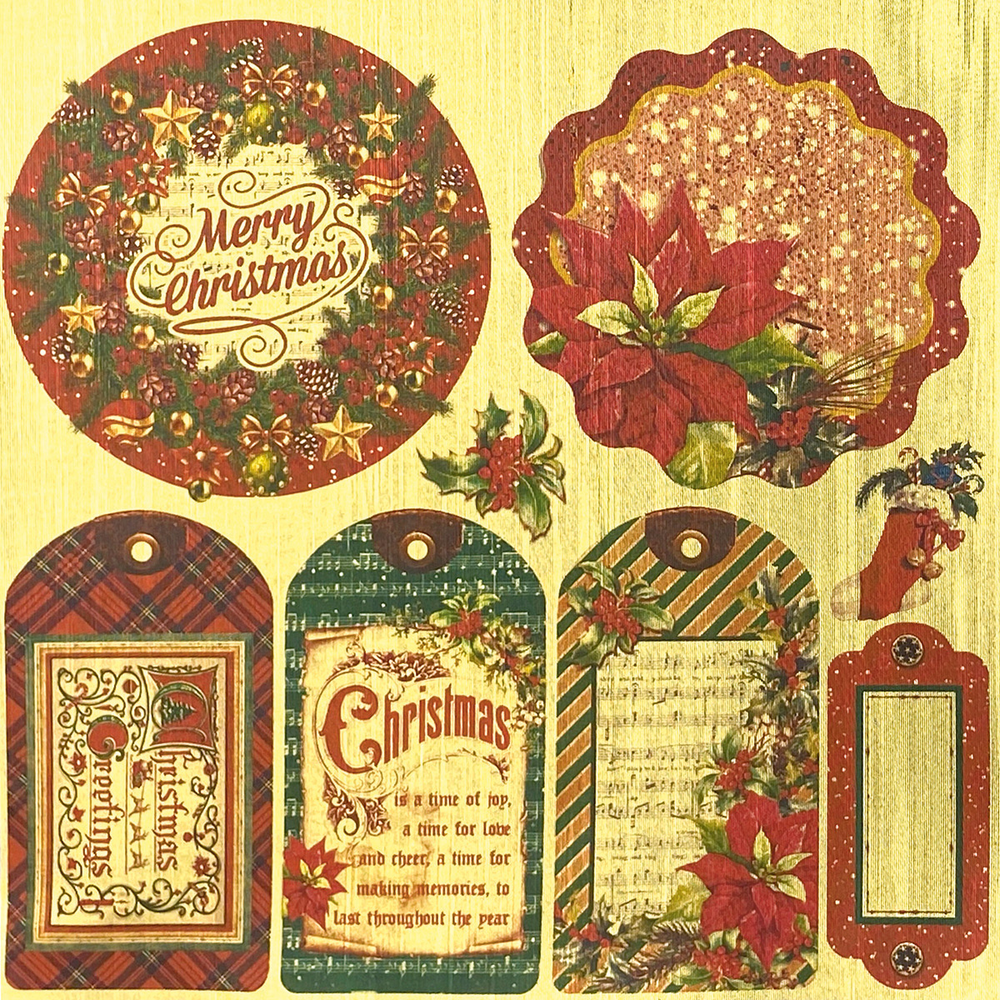 Merry
Christmas
Christmas
Greetings
Christmas
is a time of joy,
a time for love
and cheer, a time for
making memories, to
last throughout the year